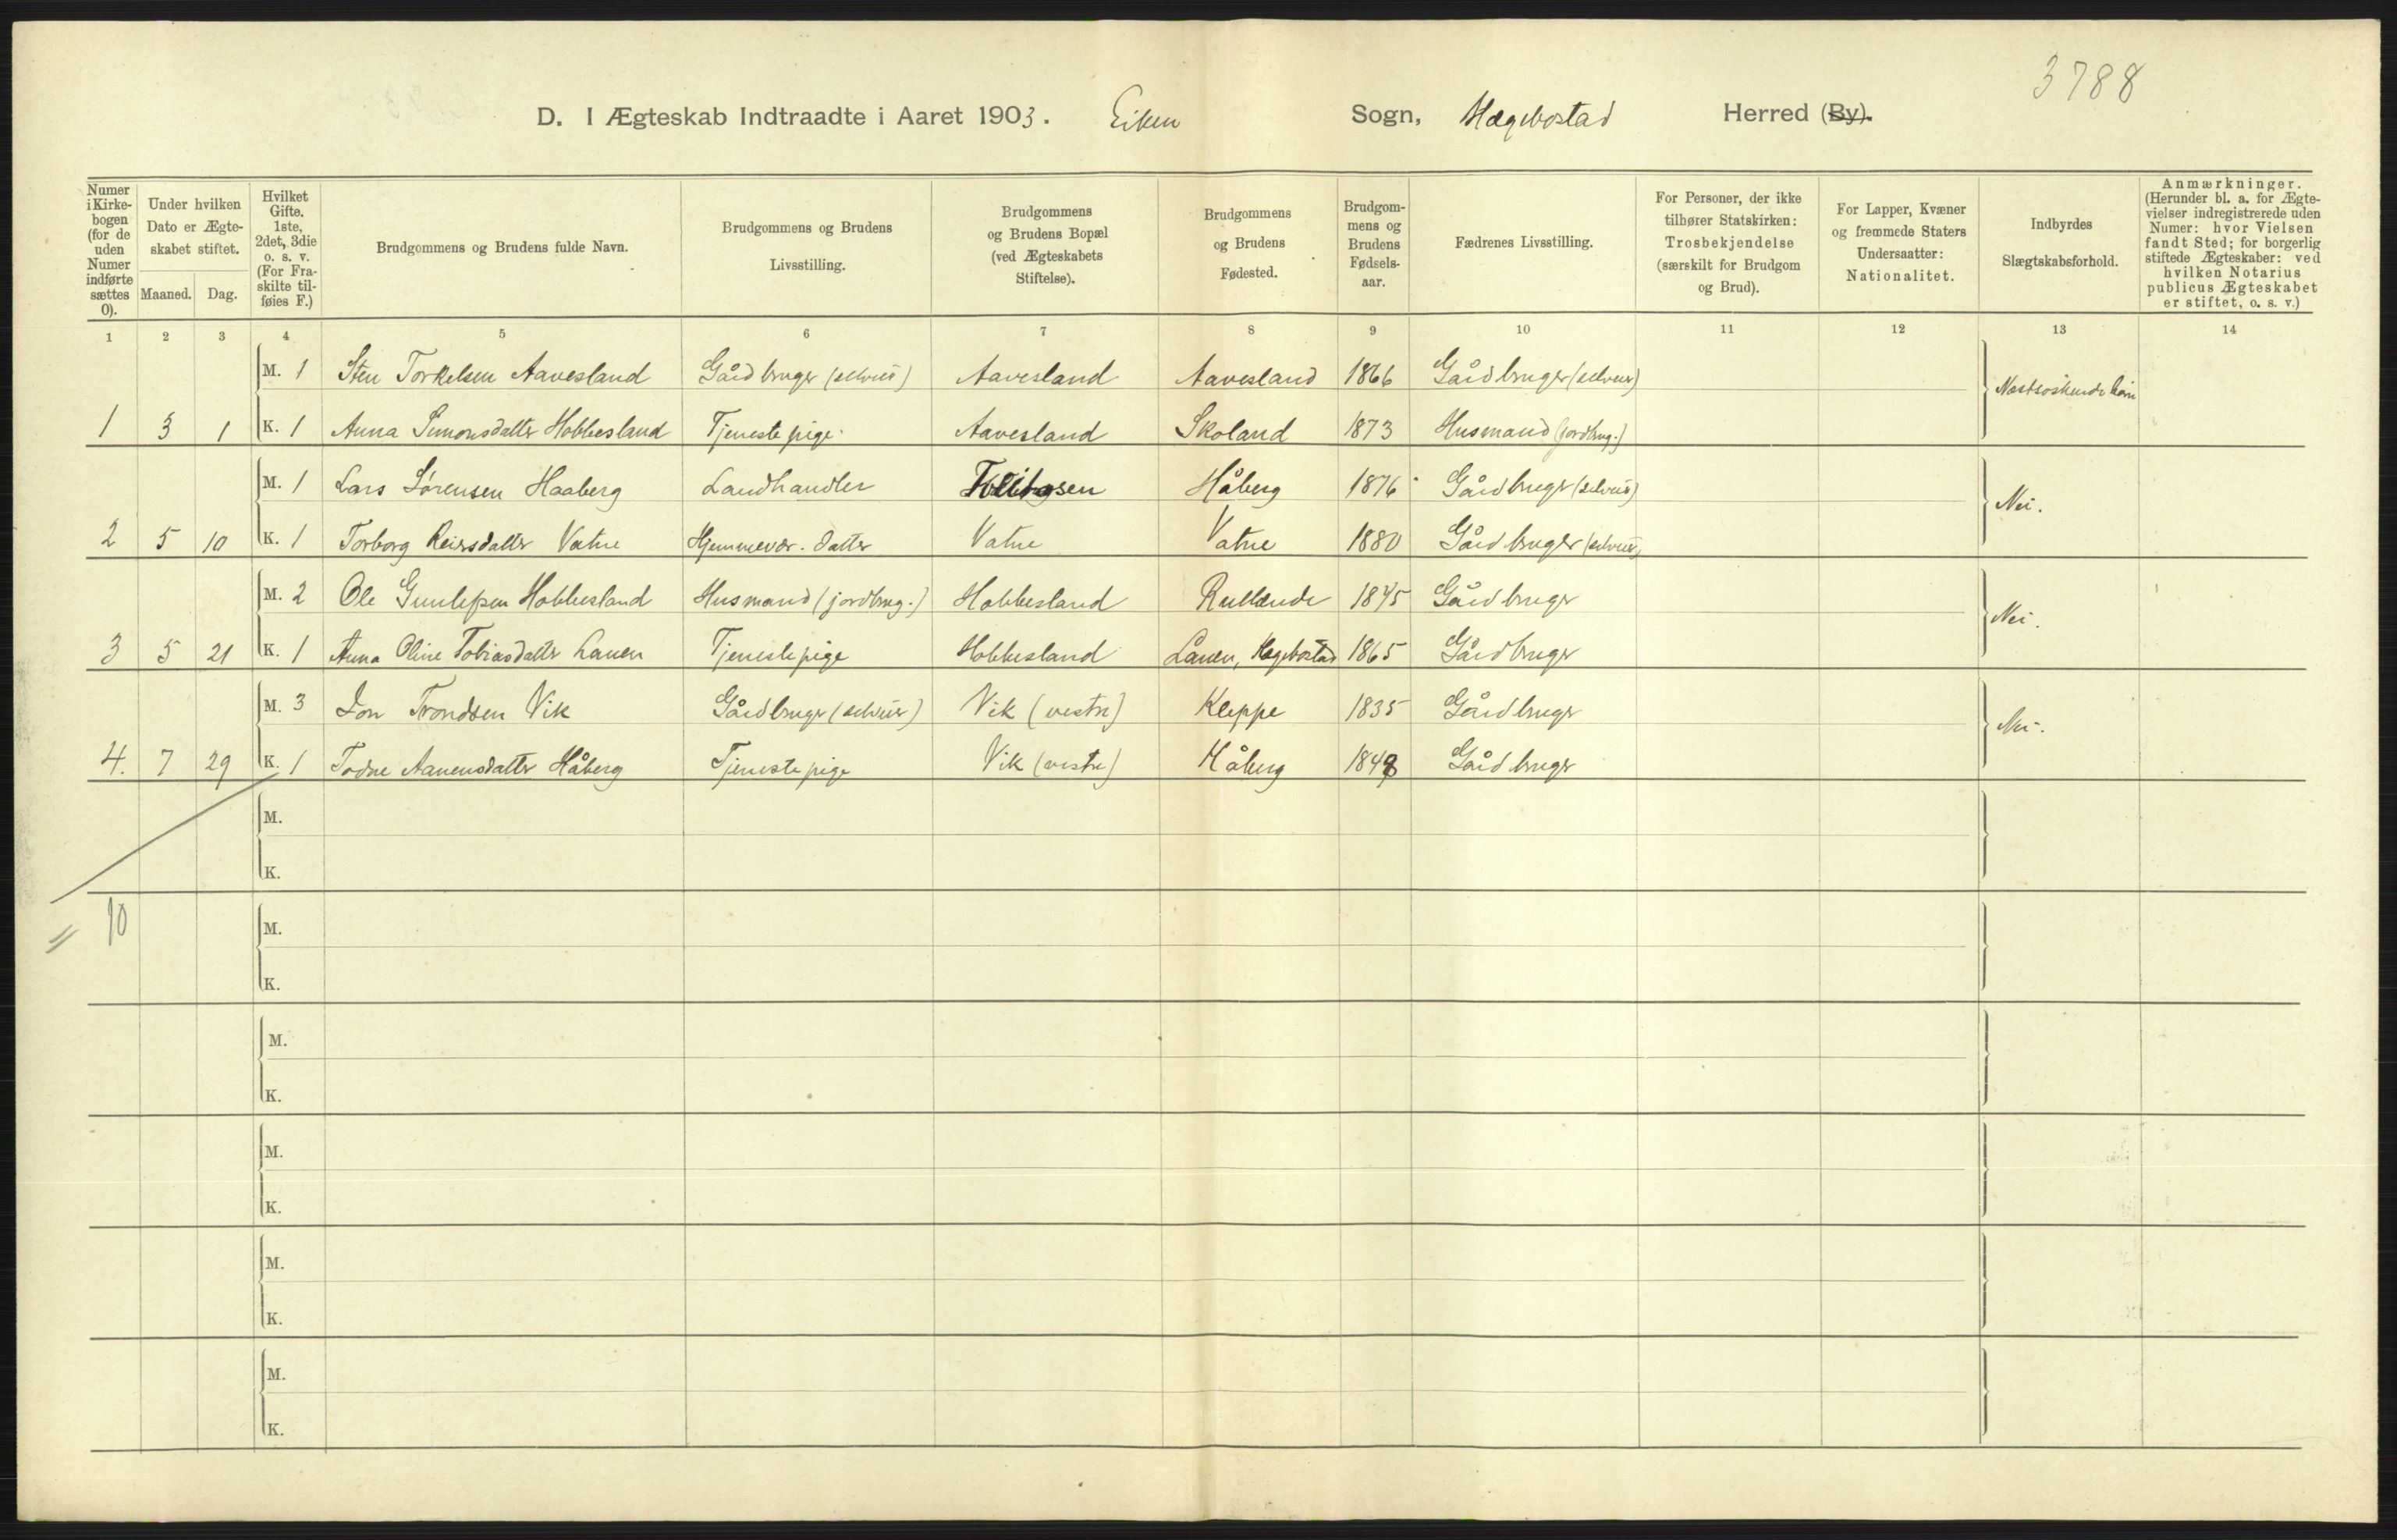 3788
D. I Ægteskab Indtraadte i Aaret 1903. Eiken Sogn, Hægebostad Herred (By).
Numer i Kirke-bogen (for de uden Numer indførte sættes 0).
Under hvilken Dato er Ægte-skabet stiftet.
Maaned. Dag.
Hvilket Gifte. 1ste, 2det, 3die o. s. v. (For Fra-skilte til-føies F.)
Brudgommens og Brudens fulde Navn.
Brudgommens og Brudens Livsstilling.
Brudgommens og Brudens Bopæl (ved Ægteskabets Stiftelse).
Brudgommens og Brudens Fødested.
Brudgom-mens og Brudens Fødsels-aar.
Fædrenes Livsstilling.
For Personer, der ikke tilhører Statskirken: Trosbekjendelse (særskilt for Brudgom og Brud).
For Lapper, Kvæner og fremmede Staters Undersaatter: Nationalitet.
Indbyrdes Slægtskabsforhold.
Anmærkninger. (Herunder bl. a. for Ægte-vielser indregistrerede uden Numer: hvor Vielsen fandt Sted; for borgerlig stiftede Ægteskaber: ved hvilken Notarius publicus Ægteskabet er stiftet, o. s. v.)
1 2 3 4 5 6 7 8 9 10 11 12 13 14
M. 1 Sten Torkelsen Aavesland Gårdbruger (selveier) Aavesland Aavesland 1866 Gårdbruger (selveier) Næstsøskendebørn
1 3 1 K. 1 Anna Simonsdatter Hobbesland Tjenestepige Aavesland Skoland 1873 Husmand (jordbrug.)
M. 1 Lars Sørensen Haaberg Landhandler Håberg 1876 Gårdbruger (selveier) Nei.
2 5 10 K. 1 Torborg Reiersdatter Vatne Hjemmevær. datter Vatne Vatne 1880 Gårdbruger (selveier)
M. 2 Ole Gunlefsen Hobbesland Husmand (jordbrug.) Hobbesland 1845 Gårdbruger Nei.
3 5 21 K. 1 Anna Oline Tobiasdatter Lauen Tjenestepige Hobbesland Låuen, Hægebostad 1865 Gårdbruger
M. 3 Jon Trondsen Vik Gårdbruger (selveier) Vik (vestre) Kleppe 1835 Gårdbruger Nei.
4. 7 29 K. 1 Todne Aanensdatter Håberg Tjenestepige Vik (vestre) Håberg 1848 Gårdbruger
M.
K.
10
M.
K.
M.
K.
M.
K.
M.
K.
M.
K.